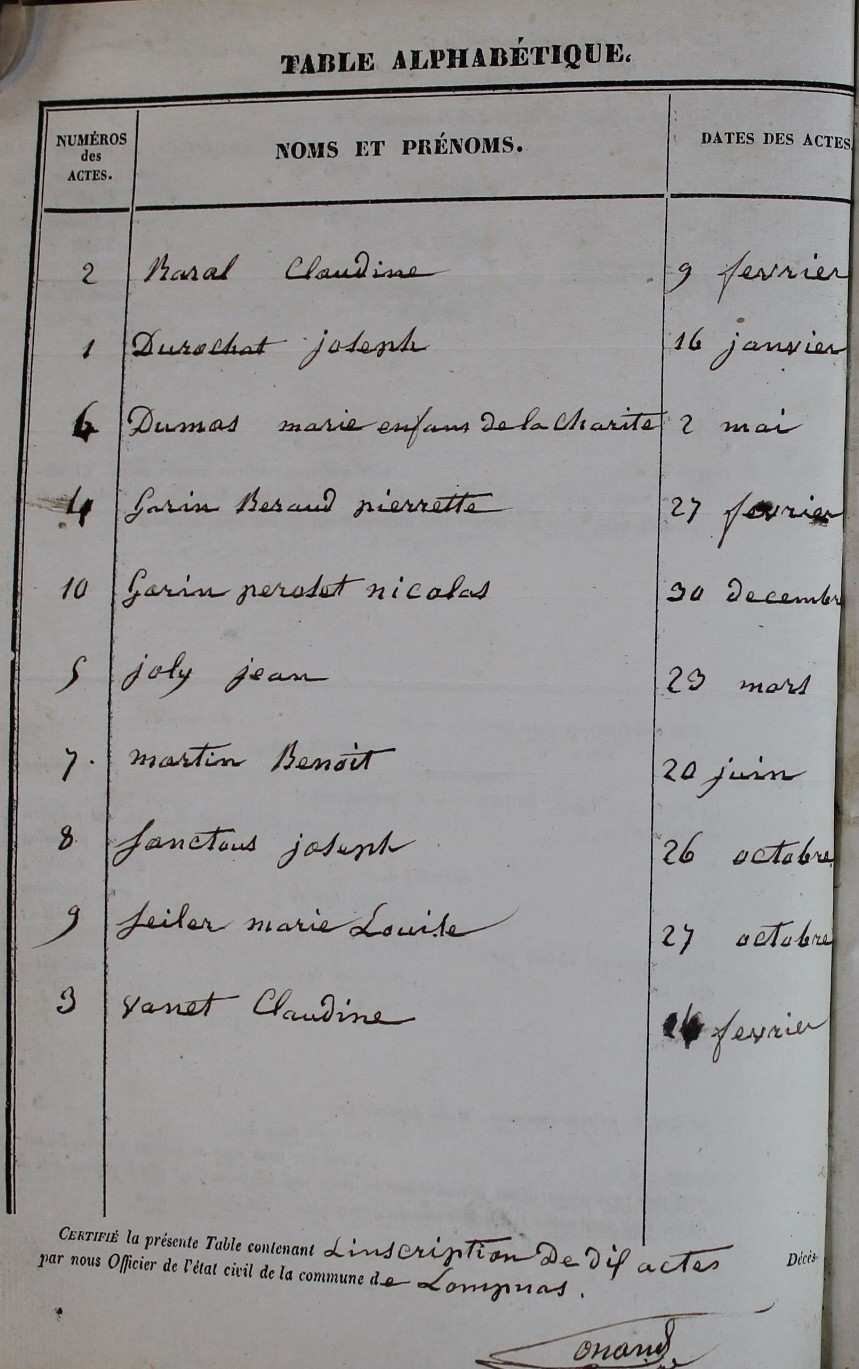 TABLE ALPHABÉTIQUE.
NUMÉROS des ACTES. NOMS ET PRÉNOMS. DATES DES ACTES.
2 Baral Claudine 9 fevrier
1 Durochat joseph 16 janvier
6 Dumas marie enfans de la charité 2 mai
4 Garin Beraud pierrette 27 fevrier
10 Garin peroset nicolas 30 decembre
5 joly jean 23 mars
7. martin Benoit 20 juin
8 Sanctous joseph 26 octobre
9 Seiler marie Louise 27 octobre
3 vanet Claudine fevrier
CERTIFIÉ la présente Table contenant Linscription de dix actes Décès
par nous Officier de l'état civil de la commune de Lompnas.